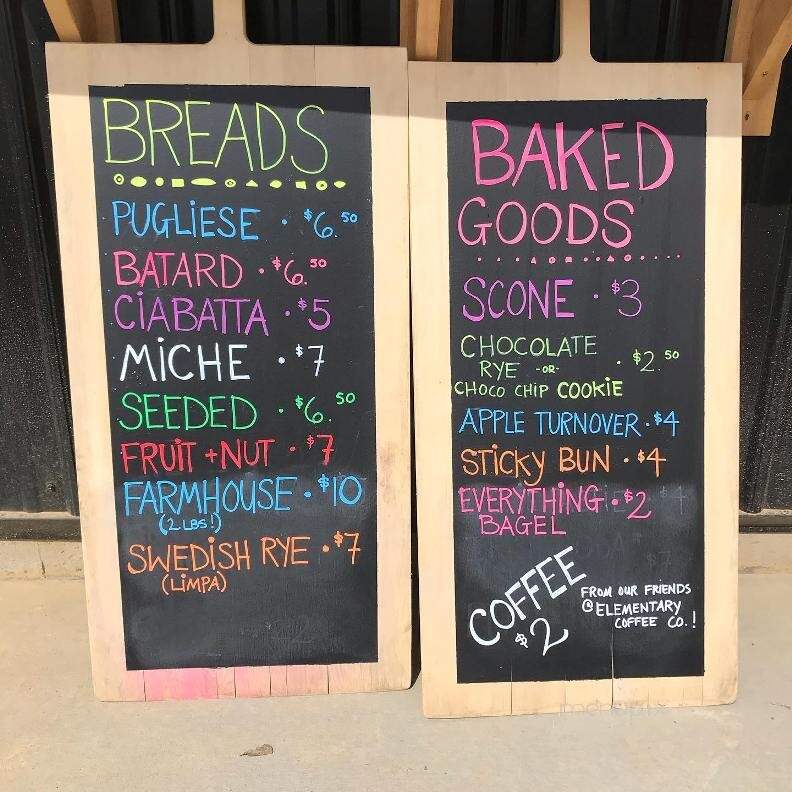 BREADS
PUGLIESE · $6.50
BATARD · $6.50
CIABATTA · $5
MICHE · $7
SEEDED · $6.50
FRUIT + NUT · $7
FARMHOUSE · $10
(2 LBS!)
SWEDISH RYE · $7
(LIMPA)
BAKED
GOODS
SCONE · $3
CHOCOLATE
RYE -OR- · $2.50
CHOCO CHIP COOKIE
APPLE TURNOVER · $4
STICKY BUN · $4
EVERYTHING · $2
BAGEL
COFFEE
$2
FROM OUR FRIENDS
@ ELEMENTARY
COFFEE CO.!